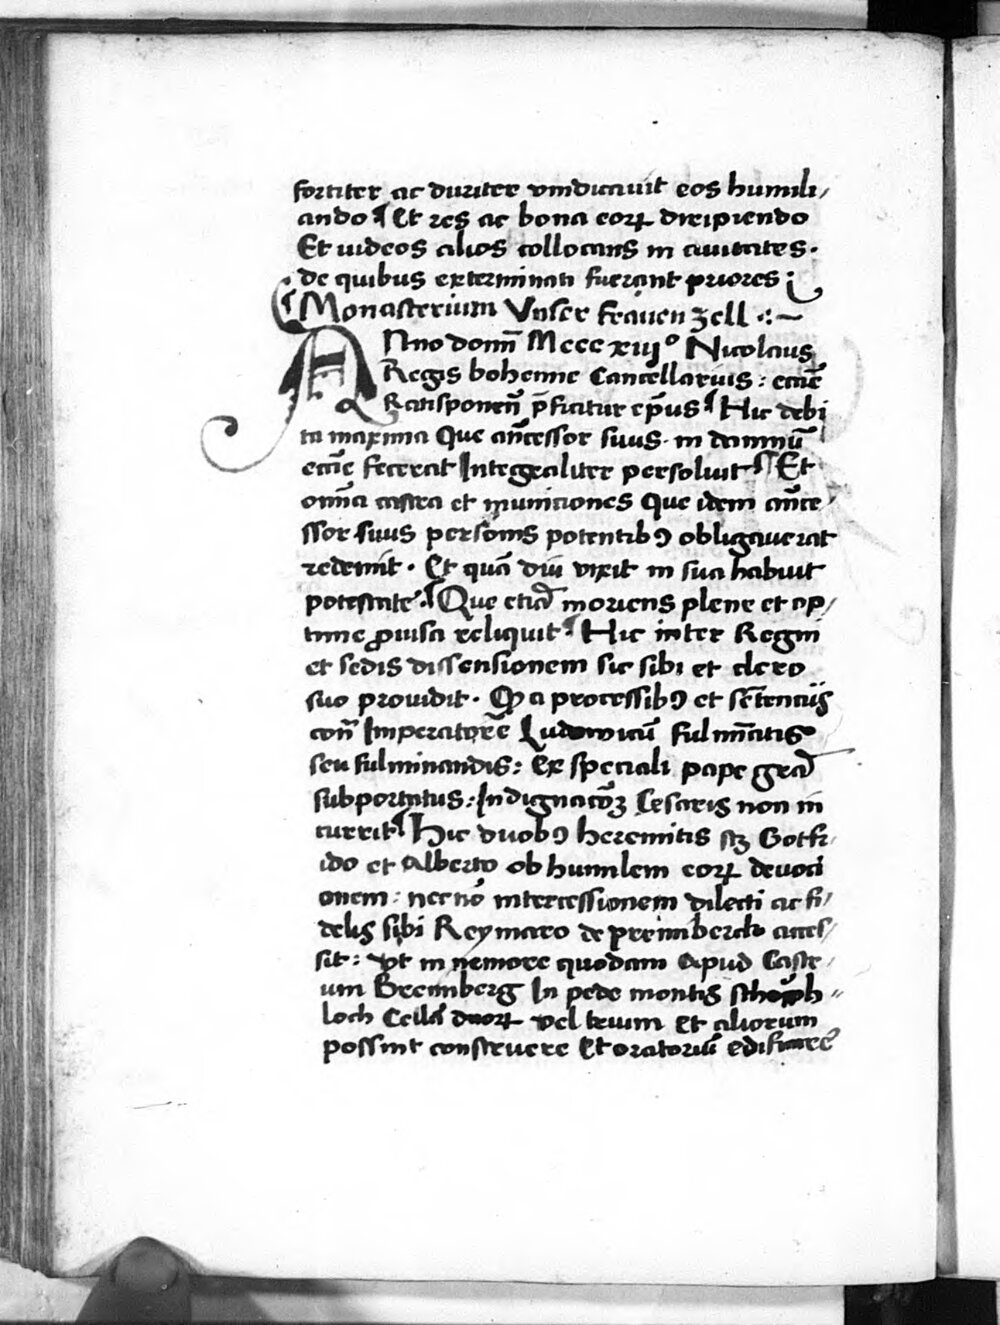 fortiter ac duriter vindicauit eos humili/
ando ¶ Et res ac bona eorꝝ diripiendo
Et uideos alios collocans in ciuitates.
de quibus exterminati fuerant priores ;
¶ Monasterium Vnser frauen zell .:~
ANno domī Mccc xiijº Nicolaus
Regis bohemie Cancellarius : eccīe
Ratisponeñ p̄ficitur ep̄us ¶ Hic debi
ta maxima Que an̄cessor suus. in dampnū
eccīe fecerat Integraliter persoluit ¶ Et
omīa castra et municiones Que idem an̄ce/
ssor suus personis potentibꝯ obligauerat
redemit . Et quā diu vixit in sua habuit
potestate. ¶ Que etiā moriens plene et op/
time ꝓuisa reliquit ¶ Hic inter Regni
et sedis dissensionem sic sibi et clero
suo prouidit . Qꝫ a processibꝯ et sn̄tenciis
con̄ Imperatorē Ludowicū fulmīatis
seu fulminandis : Ex speciali pape grā
subportatus : Indignacōꝫ Cesaris non in
currit ¶ Hic duobꝯ heremitis scꝫ Gotfr/
ido et Alberto ob humilem eorꝝ deuoci
onem : nec nō intercessionem dilecti ac fi/
delis sibi Reymaro de prennberch acces/
sit : vt in nemore quodam Apud Castr/
um Brennberg In pede montis
loch Cellā duorꝝ vel trium Et aliorum
possint construere Et oratoriū edificare